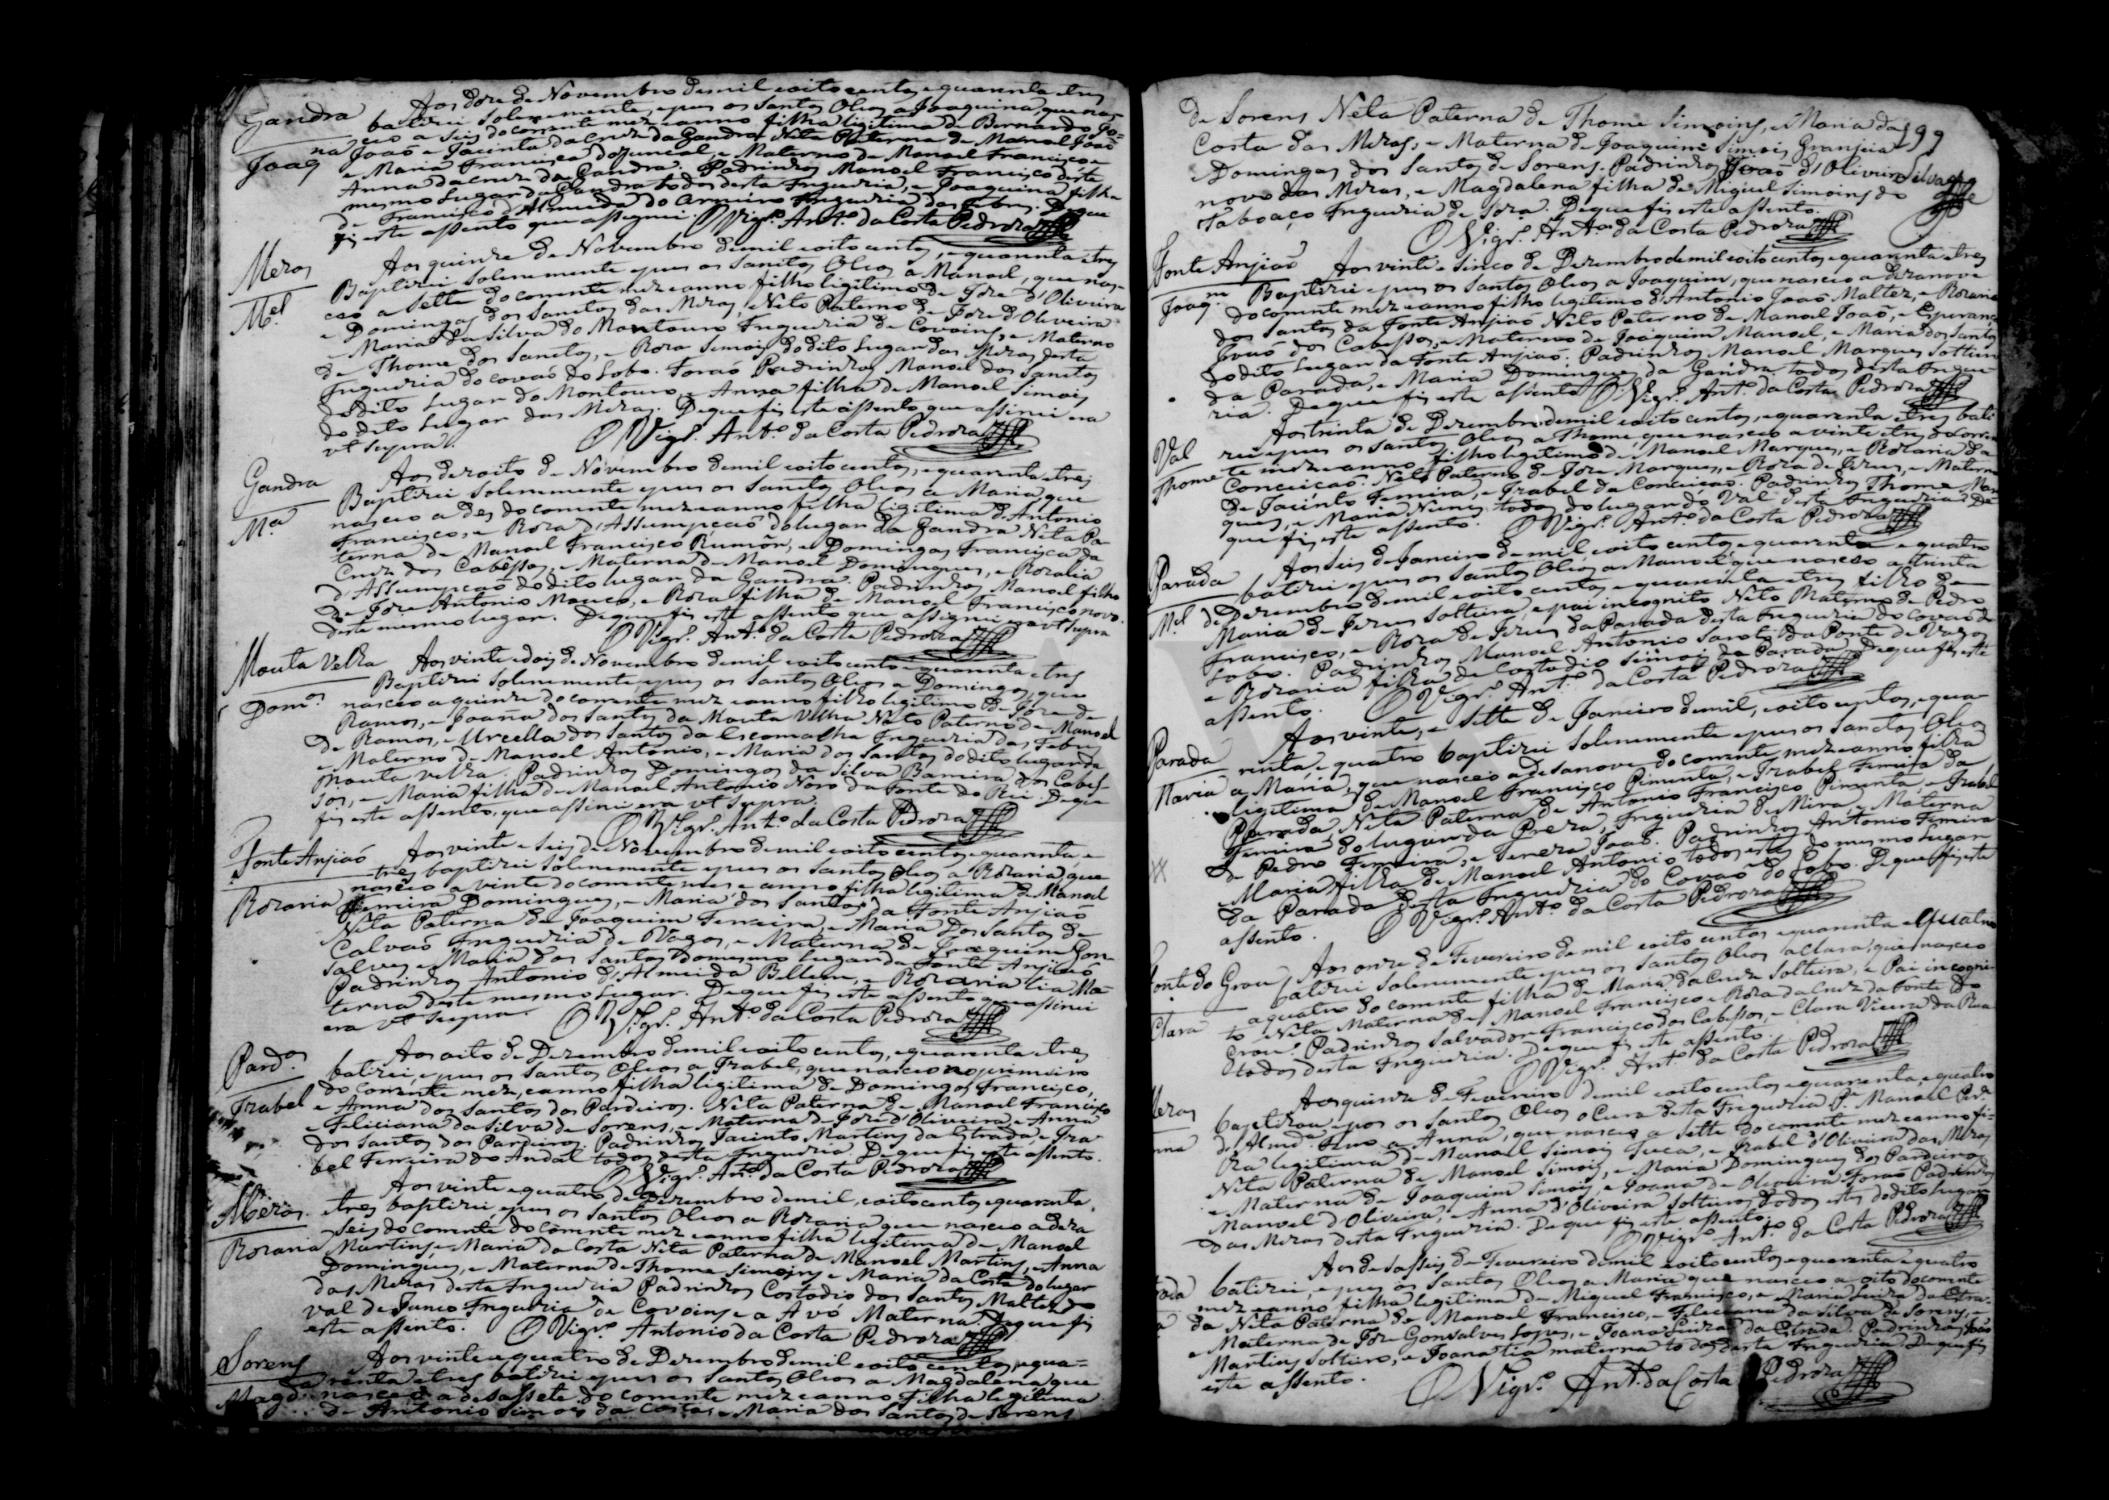 Gandra
Joaq
Aos doze de Novembro de mil eoito centos, e quarenta e tres
baptizei solenemente, epus os Santos Oleos a Joaquina, que nas-
ceo a seis do corrente mez eanno filha legitima de Bernardo Jo-
João e Jacinta da Cruz da Gandra, Neta Paterna de Manoel João
e Maria Francisca do Juncal, e Materna de Manoel Francisco e
Anna da Cruz da Gandra. Padrinhos Manoel Francisco deste
mesmo lugar da Gandra todos desta Freguezia, e Joaquina filha
de Francisco d'Almeida do Arneiro Freguezia das Febres. De que
fiz este assento que assignei. O Vigr.º Ant.º da Costa Pedroza
Meras
M.el
Aos quinze de Novembro demil eoito centos, e quarenta e tres
Baptizei solenemente epus os Sanctos Oleos a Manoel, que nas-
ceo a sette do corrente mez eanno filho legitimo de Joze d'Oliveira
e Domingas dos Sanctos das Meras, Neto Paterno de Joze d'Oliveira
e Maria da Silva do Montouro Freguezia de Covoins, e Materno
de Thome dos Sanctos, e Roza Simois do dito Lugar das Meras desta
Freguezia do covaõ do Lobo. Foraõ Padrinhos Manoel dos Sanctos
do dito Lugar do Montouro, e Anna filha de Manoel Simois
do dito Lugar das Meras. De que fiz este assento que assinei era
vt supra.
O Vigr.º Ant.º da Costa Pedroza
Gandra
M.ª
Aos dezoito de Novembro demil eoito centos, e quarenta e tres
Baptizei solenemente epus os Sanctos Oleos a Maria que
nasceo a dez do corrente mez eanno filha legitima de Antonio
Francisco, e Roza d'Assumpcaõ do lugar da Gandra Neta Pa-
terna de Manoel Francisco Rumôr, e Domingas Francisca da
Cruz dos Cabêssos, e Materna de Manoel Domingues, e Rozalia
d'Assumpcaõ do dito lugar da Gandra. Padrinhos Manoel filho
de Joze Antonio Mouco, e Roza filha de Manoel Francisco novo
deste mesmo lugar. De que fiz este assento que assignei era vt supra
O Vigr.º Ant.º da Costa Pedroza
Mouta Velha
Dom.os
Aos vinte edois de Novembro demil eoito centos e quarenta e tres
Baptizei solenemente, epus os Santos Oleos a Domingos, que
nasceo a quinze do corrente mez eanno filho legitimo de Joze de
Ramos, e Joana dos Santos da Mouta Velha Neto Paterno de Manoel
de Ramos, e Urcella dos Santos da Escomalha Freguezia das Febres
e Materno de Manoel Antonio, e Maria dos Santos do dito lugar da
Mouta velha. Padrinhos Domingos da Silva Barreira dos Cabes-
sos, e Maria filha de Manoel Antonio Novo da Fonte do Rei. De que
fiz este assento, que assinei era vt supra.
O Vigr.º Ant.º da Costa Pedroza
Fonte Anjiaõ
Rozaria
Aos vinte e seis de Novembro demil eoito centos, equarenta e
tres baptizei solenemente epus os Santos Oleos a Rozaria que
nasceo a vinte do corrente mes e anno filha legitima de Manoel
Ferreira Domingues, e Maria dos Santos da Fonte Anjiaõ
Neta Paterna de Joaquim Ferreira, e Maria dos Santos de
Calvaõ Freguezia de Vagos, e Materna de Joaquim Gon-
salves, e Maria dos Santos domesmo lugar da Fonte Anjiaõ
Padrinhos Antonio d'Almeida Bellem, e Rozaria tia Ma-
terna deste mesmo Lugar. De que fiz este assento que assinei
era vt supra.
O Vigr.º Ant.º da Costa Pedroza
Pard.os
Izabel
Aos oito de Dezembro demil eoito centos, equarenta e tres
batizei, epus os Santos Oleos a Izabel, que nasceo no primeiro
do corrente mez, eanno filha legitima de Domingos Francisco,
e Anna dos Santos dos Pardeiros. Neta Paterna de Manoel Francisco
e Feliciana da Silva de Sorens, e Materna de Joze d'Oliveira e Anna
dos Santos dos Pardeiros. Padrinhos Jacinto Martins da Estrada e Iza-
bel Ferreira do Andal todos desta Freguezia De que fiz este assento.
O Vigr.º Ant.º da Costa Pedroza
Meras
Rozaria
Aos vinte equatro de Dezembro demil, eoito centos equarenta,
tres baptizei, epus os Santos Oleos a Rozaria que nasceo a deza
seis do corrente do corrente mez eanno filha legitima de Manoel
Martins, e Maria da Costa Neta Paterna de Manoel Martins, e Anna
Domingues, e Materna de Thome Simoins e Maria da Costa do lugar
das Meras desta Freguezia Padrinhos Costodio dos Santos Maltez do
Val de Junco Freguezia de Covoins e a Avó Materna. De que fiz
este assento. O Vigr.º Antonio da Costa Pedroza
Sorens
Magd.
Aos vinte equatro de Dezembro demil eoito centos, equa-
renta etres batizei epus os Santos Oleos a Magdalena que
nasceo a desassete do corrente mez eanno Filha legitima
de Antonio Simois da Costa, e Maria dos Santos de Sorens
199
de Sorens Neta Paterna de Thome Simoins, e Maria da
Costa das Meras, e Materna de Joaquim Simois Granjeia
e Domingas dos Santos de Sorens. Padrinhos João d'Oliveira
novo das Meras, e Magdalena filha de Miguel Simoins do
Taboaço Freguezia de Soza. De que fiz este assento.
Silva
O Vigr.º Ant.º da Costa Pedroza
Fonte Anjiaõ
Joaq.m
Aos vinte e sinco de Dezembro de mil eoito centos equarenta etres
Baptizei epus os Santos Oleos a Joaquim, que nasceo a dezanove
do corrente mez eanno filho legitimo d'Antonio Joaõ Maltez, e Rozaria
dos Santos da Fonte Anjiaõ Neto Paterno de Manoel Joaõ, e Esperança
Joaõ dos Cabessos, e Materno de Joaquim Manoel, e Maria dos Santos
do dito Lugar da Fonte Anjiaõ. Padrinhos Manoel Marques Solteiro
da Parada, e Maria Domingues da Gandra todos desta Fregue-
zia. De que fiz este assento O Vigr.º Ant.º da Costa Pedroza
Val
Thome
Aos trinta de Dezembro demil eoito centos, equarenta, e tres bati-
zei epus os Santos Oleos a Thome, que nasceo a vinte etres do corren-
te mez eanno filho legitimo de Manoel Marques, e Rozaria da
Conceicaõ. Neto Paterno de Joze Marques, e Roza de Jezus, e Materno
de Jacinto Ferreira, e Izabel da Conceicaõ. Padrinhos Thome Mar-
ques, e Maria Nunes todos do lugar do Val desta Freguezia De
que fiz este assento. O Vigr.º Ant.º da Costa Pedroza
Parada
M.el
Aos seis de Janeiro de mil eoito centos equarenta e quatro
batizei epus os Santos Oleos a Manoel que nasceo a trinta
de Dezembro demil eoito centos, e quarenta e tres filho de
Maria de Jezus solteira, e pai incognito Neto Materno de Pedro
Francisco, e Roza de Jezus da Parada desta Freguezia do Covaõ do
Lobo. Padrinhos Manoel Antonio Sarote da Ponte de Vagos
e Rozaria filha de Costodio Simois da Parada. De que fiz este
assento. O Vigr.º Ant.º da Costa Pedroza
Parada
Maria
Aos vinte, e sette de Janeiro demil, eoito centos, e qua-
renta, e quatro baptizei solenemente epus os Sanctos Oleos
a Maria, que nasceo a desanove do corrente mez eanno filha
legitima de Manoel Francisco Pimenta, e Izabel Ferreira da
Parada Neta Paterna de Antonio Francisco Pimenta, e Izabel
Ferreira do lugar da Preza, Freguezia de Mira, e Materna
de Pedro Ferreira, e Tereza Joaõ. Padrinhos Antonio Ferreira
e Maria filha de Manoel Antonio todos estes do mesmo Lugar
da Parada desta Freguezia do Covaõ do Lobo. De que fiz este
assento. O Vigr.º Ant.º da Costa Pedroza
Fonte do Grou
Clara
Aos onze de Fevereiro de mil eoito centos equarenta equatro
batizei solenemente epus os Santos Oleos a Clara, que nasceo
a quatro do corrente filha de Maria da Cruz Solteira, e Pai incogni-
to Neta Materna de Manoel Francisco e Roza da Cruz da Fonte do
Grou. Padrinhos Salvador Francisco dos Cabessos, e Clara Vieira da Rua
todos desta Freguezia. De que fiz este assento
O Vigr.º Ant.º da Costa Pedroza
Meras
nna
Aos quinze de Fevereiro demil eoito centos equarenta, e quatro
baptizou epos os Santos Oleos o Cura desta Freguezia P.e Manoel Ped.ª
d'Almd.ª a Anna, que nasceo a sette do corrente mez eanno fi-
lha legitima de Manoel Simois, e Izabel d'Oliveira das Meras
Neta Paterna de Manoel Simois, e Maria Domingues dos Pardeiros
e Materna de Joaquim Simois, e Joana de Oliveira Foraõ Padrinhos
Manoel d'Oliveira, e Anna d'Oliveira Solteiros todos estes do dito lugar
das Meras desta Freguezia. De que fiz este assento.
O Vigr.º Ant.º da Costa Pedroza
Aos desasseis de Fevereiro demil eoito centos equarenta e quatro
batizei, epus os Santos Oleos a Maria que nasceo a oito do corrente
mez eanno filha legitima de Miguel Francisco, e Maria Luiza da Estra-
da Neta Paterna de Manoel Francisco, e Fleciana da Silva de Sorens, e
Materna de Joze Gonsalves Lopes, e Joana Luiza da Estrada Padrinhos João
Martins Solteiro, e Joana tia materna todos desta Freguezia De que fiz
este assento.
O Vigr.º Ant.º da Costa Pedroza